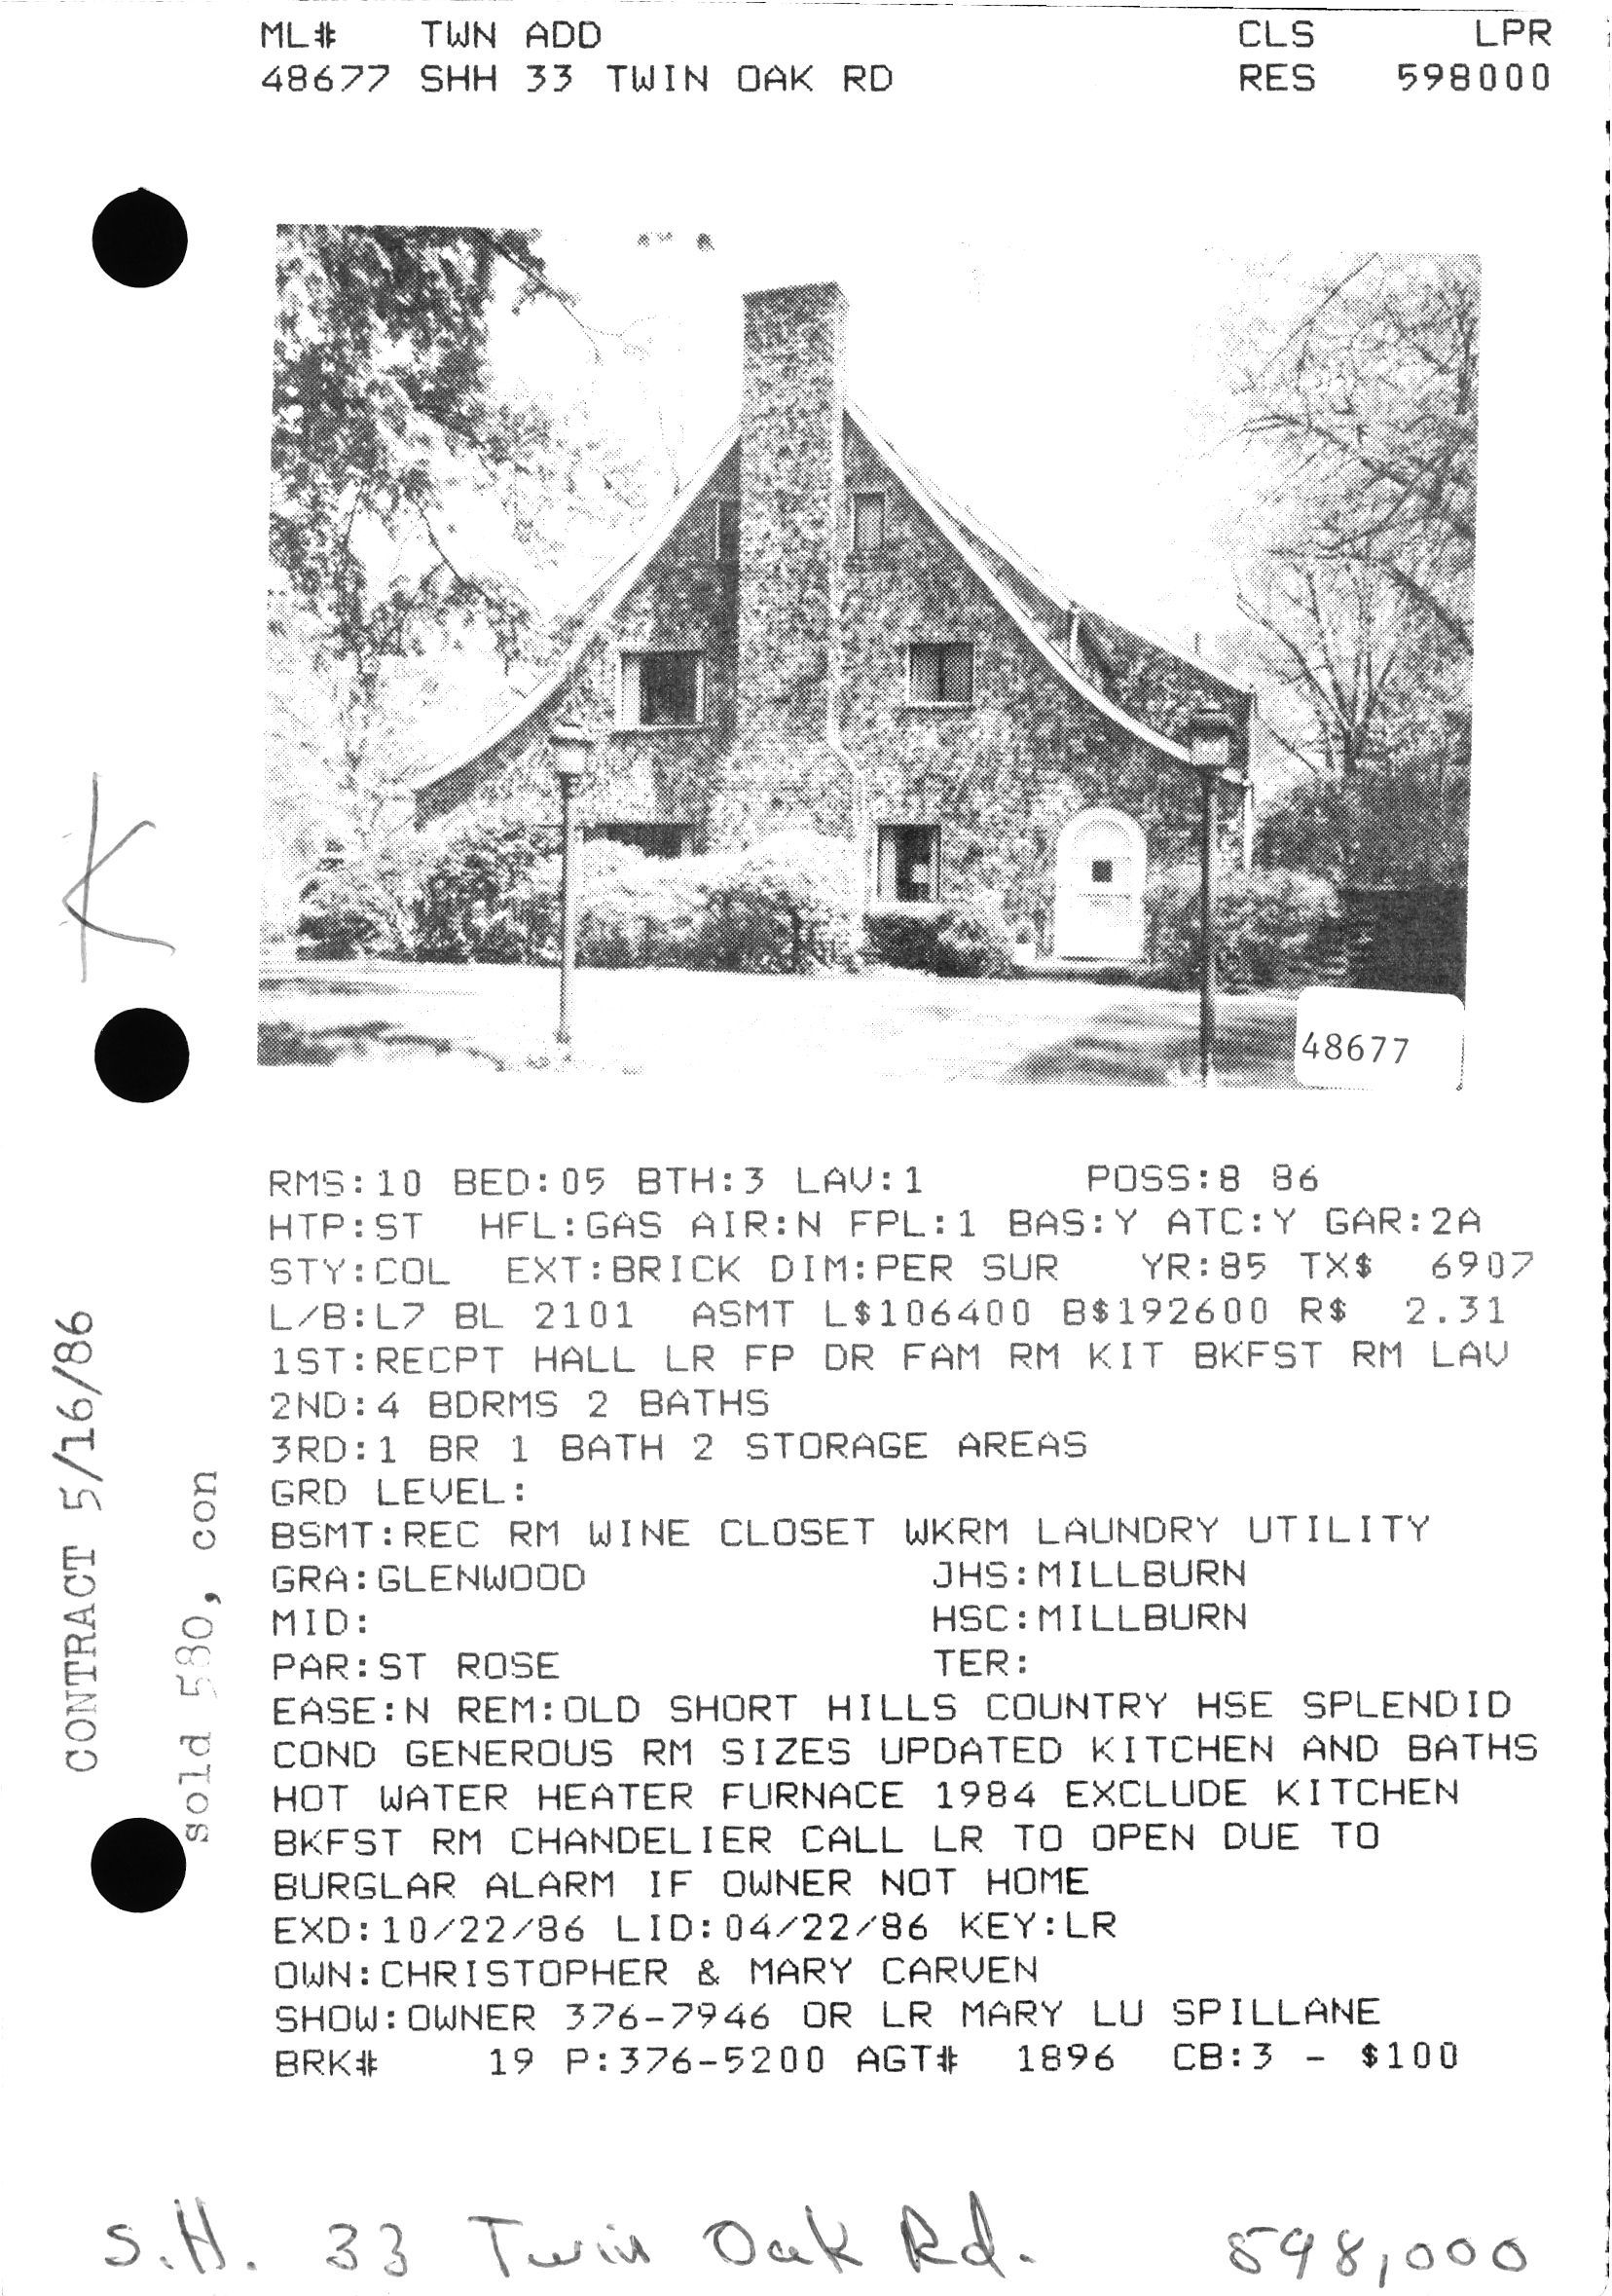 ML# TWN ADD CLS LPR
48677 SHH 33 TWIN OAK RD RES 598000
48677
K
RMS:10 BED:05 BTH:3 LAV:1 POSS:8 86
HTP:ST HFL:GAS AIR:N FPL:1 BAS:Y ATC:Y GAR:2A
STY:COL EXT:BRICK DIM:PER SUR YR:85 TX$ 6907
L/B:L7 BL 2101 ASMT L$106400 B$192600 R$ 2.31
1ST:RECPT HALL LR FP DR FAM RM KIT BKFST RM LAV
2ND:4 BDRMS 2 BATHS
3RD:1 BR 1 BATH 2 STORAGE AREAS
GRD LEVEL:
BSMT:REC RM WINE CLOSET WKRM LAUNDRY UTILITY
GRA:GLENWOOD JHS:MILLBURN
MID: HSC:MILLBURN
PAR:ST ROSE TER:
EASE:N REM:OLD SHORT HILLS COUNTRY HSE SPLENDID
COND GENEROUS RM SIZES UPDATED KITCHEN AND BATHS
HOT WATER HEATER FURNACE 1984 EXCLUDE KITCHEN
BKFST RM CHANDELIER CALL LR TO OPEN DUE TO
BURGLAR ALARM IF OWNER NOT HOME
EXD:10/22/86 LID:04/22/86 KEY:LR
OWN:CHRISTOPHER & MARY CARVEN
SHOW:OWNER 376-7946 OR LR MARY LU SPILLANE
BRK# 19 P:376-5200 AGT# 1896 CB:3 - $100
CONTRACT 5/16/86
sold 580, con
S.H. 33 Twin Oak Rd. 598,000